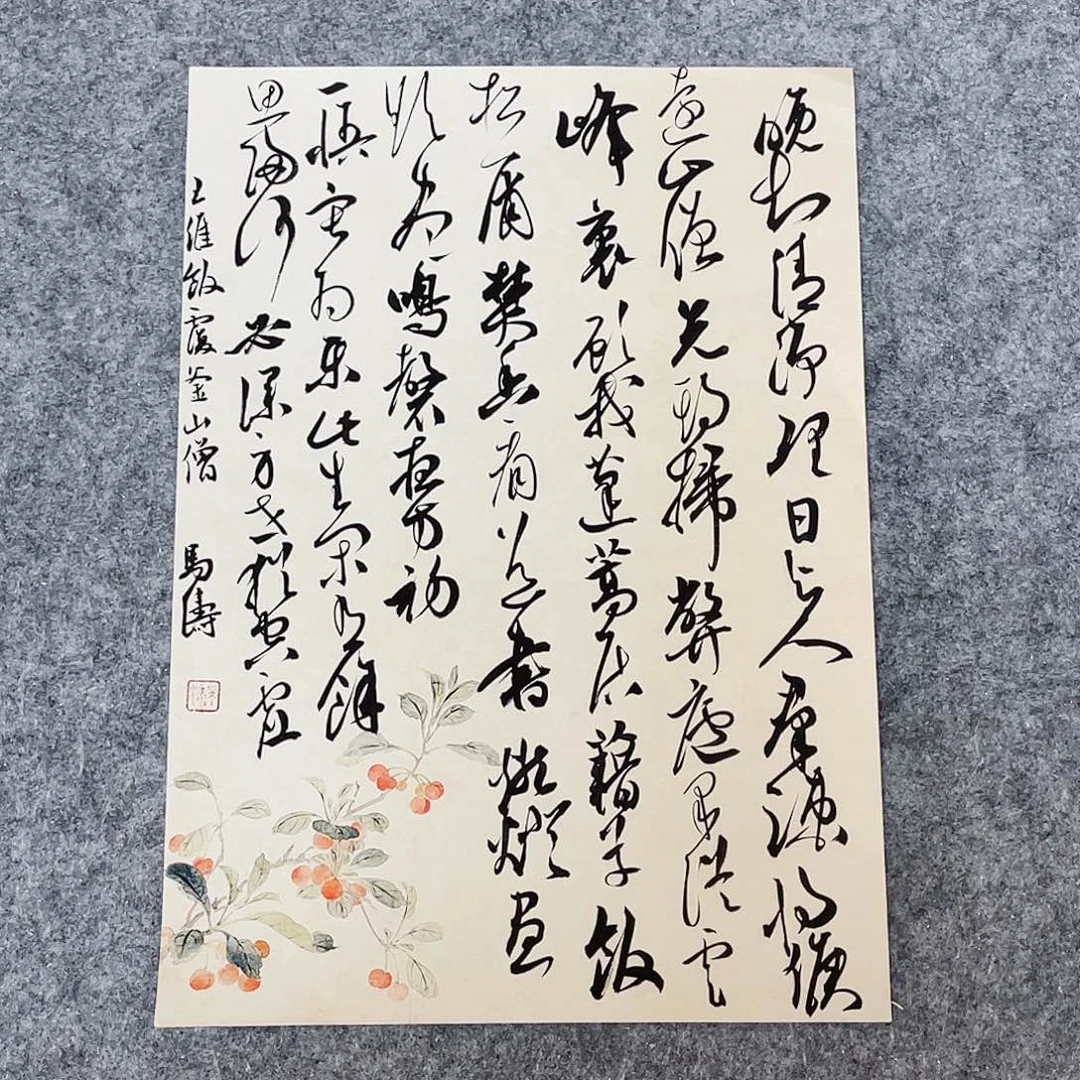 晚知清淨理日與人群疎將候
遠山僧先期掃弊廬果從雲
峰裏顧我蓬蒿居藉草飯
松屑焚香看道書燃燈晝
欲盡鳴磬夜方初
一悟寂為樂此生閑有餘
思歸何必深身世猶空虛
王維飯覆釜山僧 馬濤